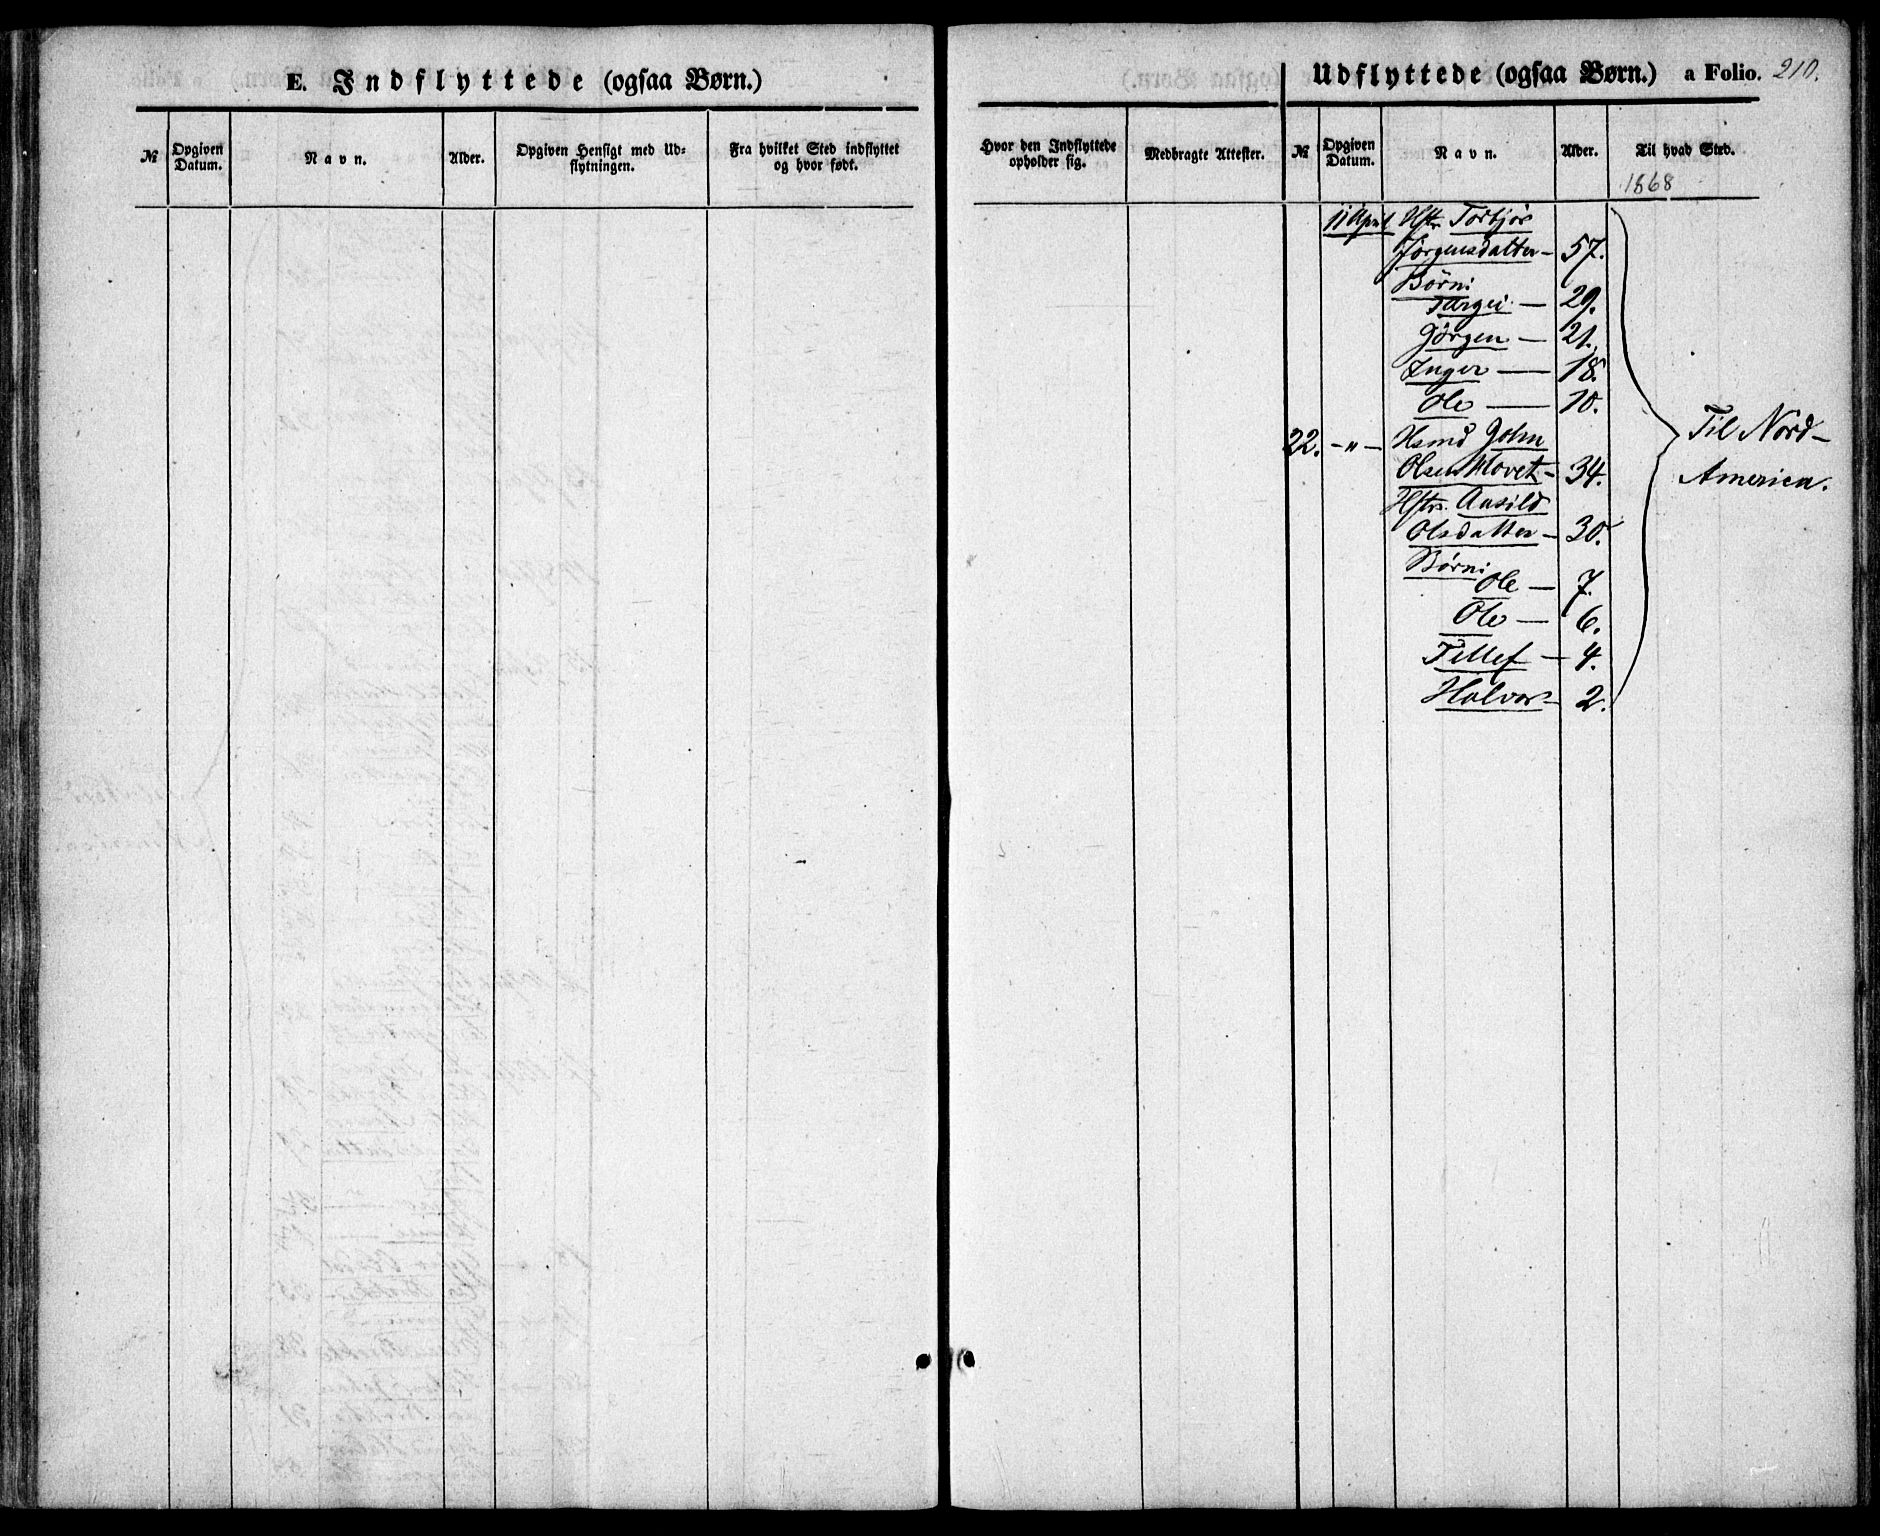 E. Indflyttede (ogsaa Børn.)
№
Opgiven Datum.
Navn.
Alder.
Opgiven Hensigt med Ud=
flytningen.
Fra hvilket Sted indflyttet
og hvor født.
Udflyttede (ogsaa Børn.) a Folio. 210.
Hvor den Indflyttede
opholder sig.
Medbragte Attester.
№
Opgiven Datum.
Navn.
Alder.
Til hvad Sted.
1868
11 April Hstr Torbjør
Jørgensdatter — 57.
Børn:
Targei — 29.
Jørgen — 21.
Inger — 18.
Ole — 10.
22. - " - Hsmd John
Olsen Hovet - 34.
Hstr. Aasild
Olsdatter — 30.
Børn:
Ole — 7.
Ole — 6.
Tellef — 4.
Halvor — 2.
Til Nord-
America.